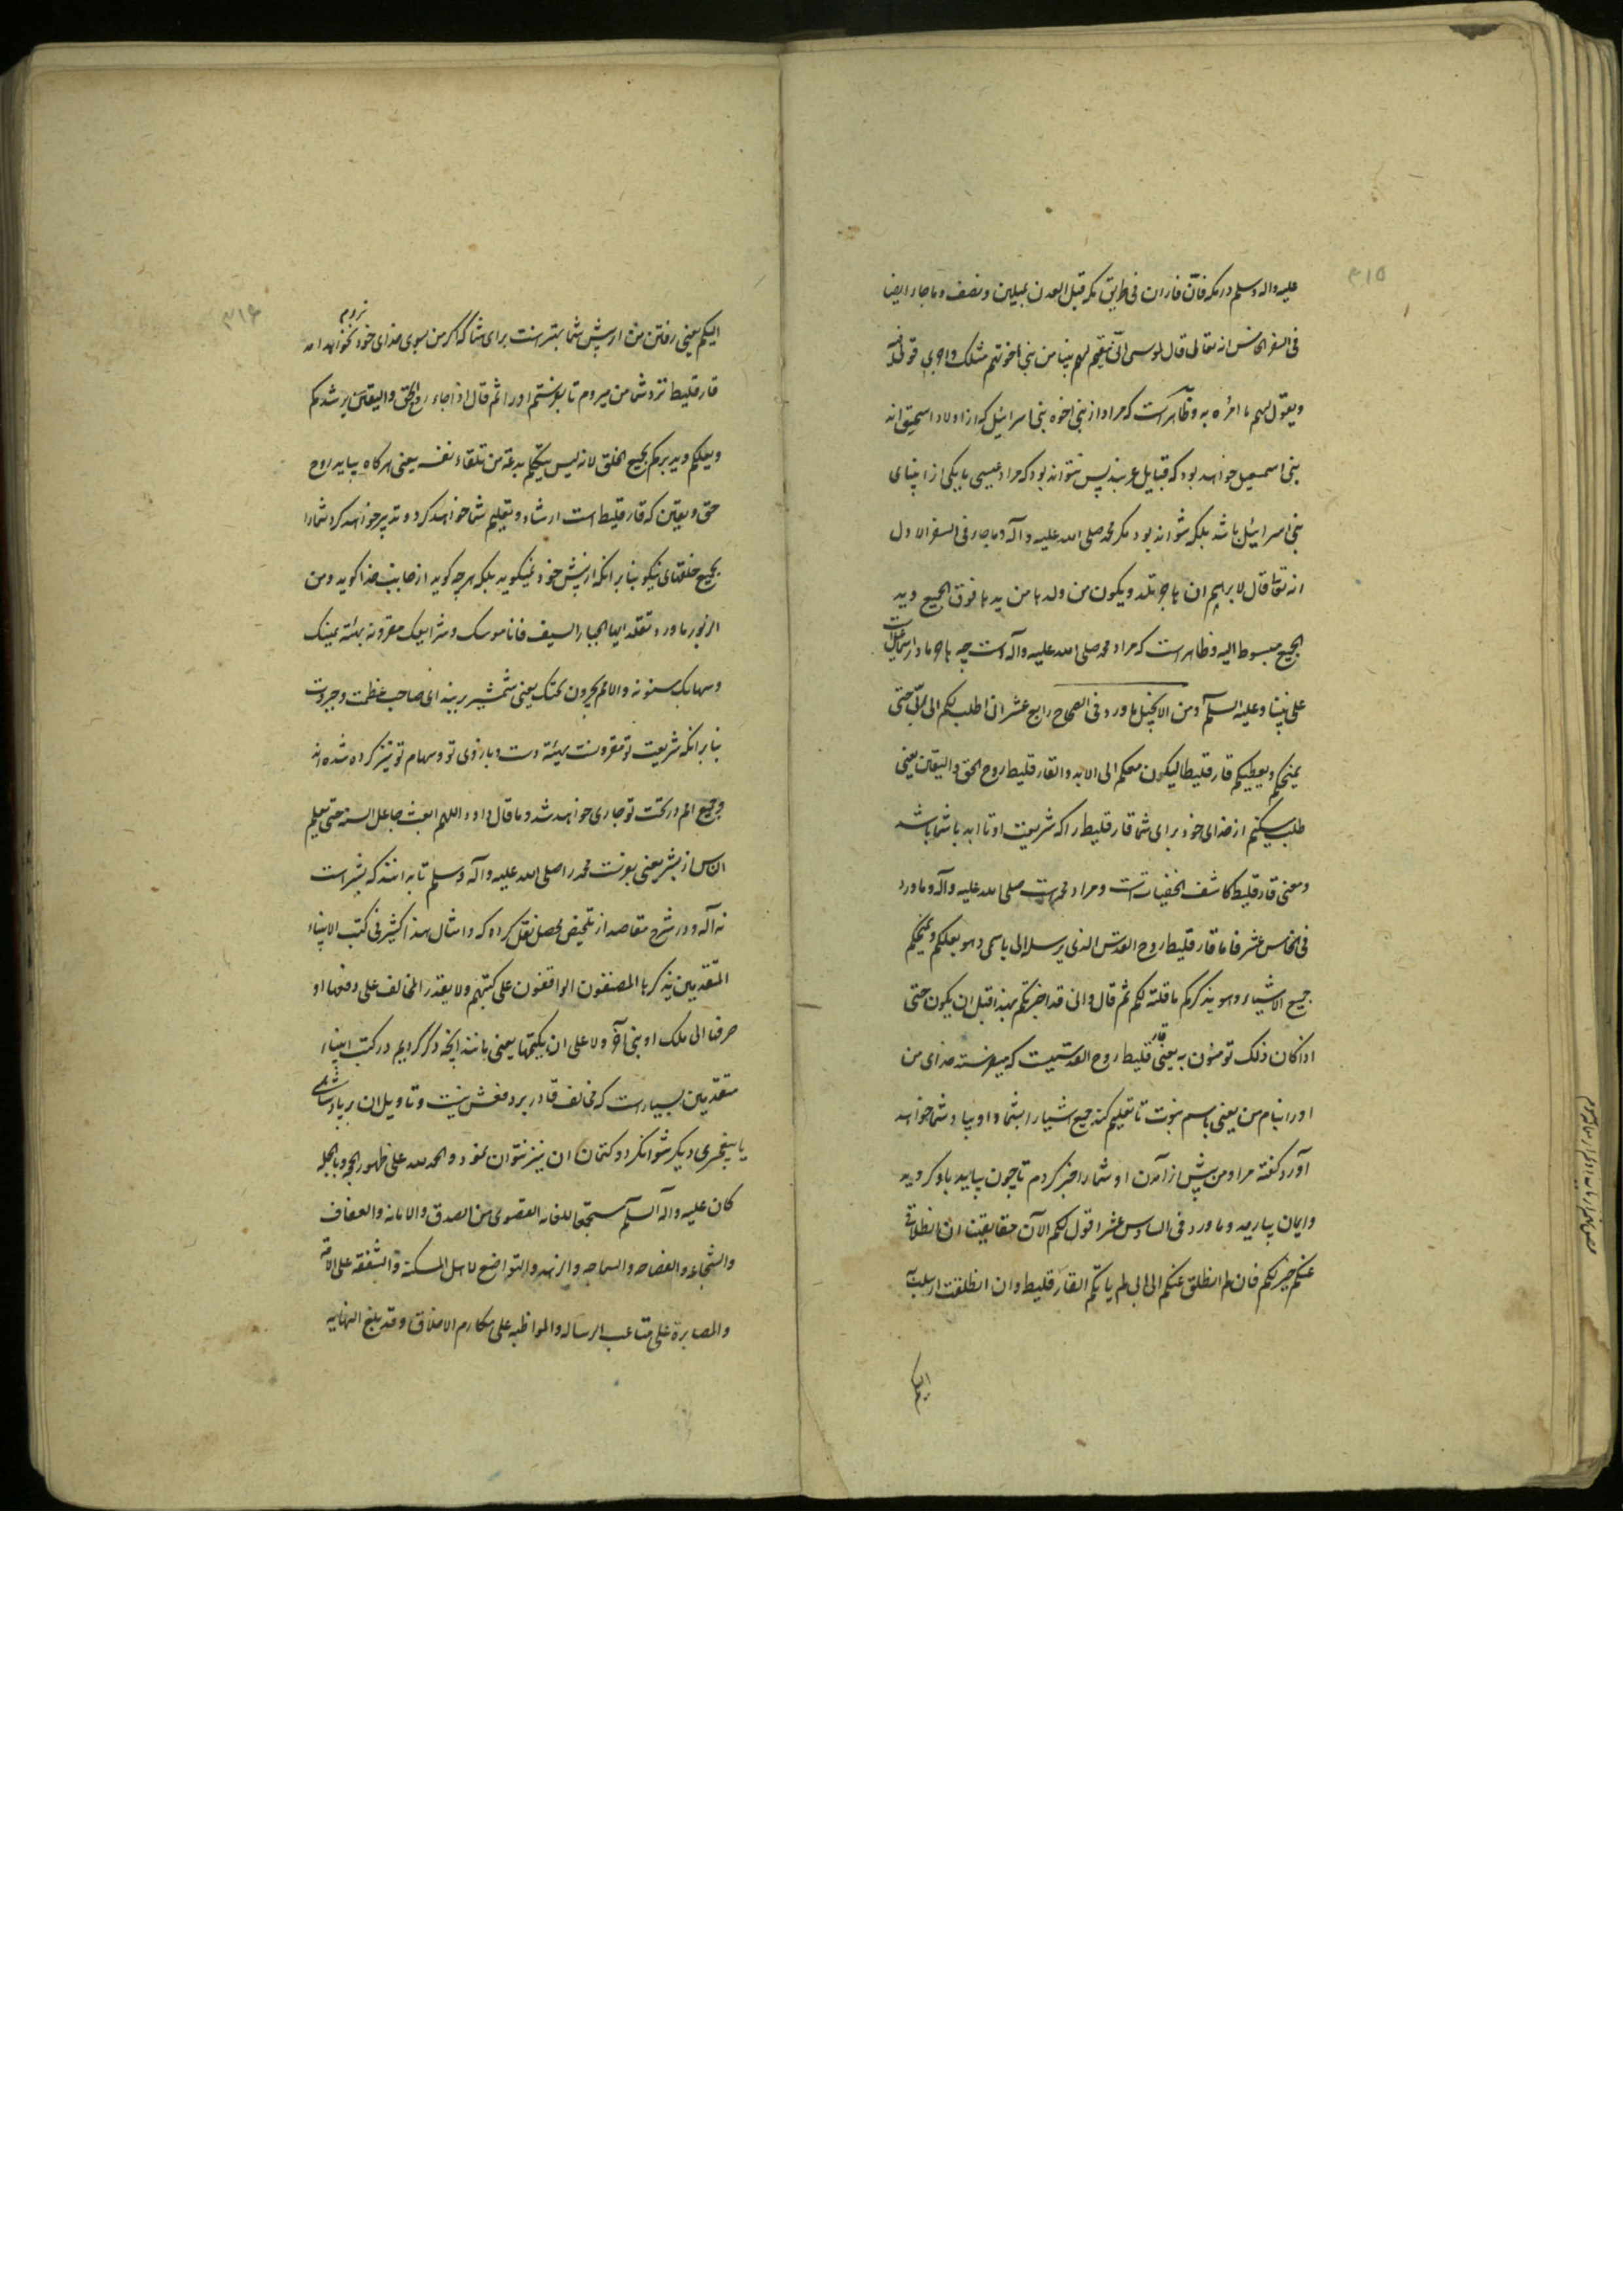 ۳۱۵
علیه واله وسلم در مکه فان فاران فی طریق مکه قبل العدن بمیلین ونصف وما جاء ایضا
فی السفر الخامس انه تعالی قال لموسی انی مقیم لهم نبیا من بنی اخوتهم مثلک واجری قولی فی فمه
ویقول لهم ما امره به وظاهر است که مراد از بنی اخوه بنی اسرائیل که از اولاد اسحق اند
بنی اسمعیل خواهد بود که قبایل عربند پس نتواند بود که مراد عیسی یا یکی از انبیای
بنی اسرائیل باشد بلکه نتواند بود مگر محمد صلی الله علیه وآله وما جاء فی السفر الاول
انه تعا قال لابرهیم ان هاجر تلد ویکون من ولدها من یده فوق الجمیع وید
الجمیع مبسوط الیه وظاهر است که مراد محمد صلی الله علیه وآله است چه هاجر مادر اسماعیل است
علی نبینا وعلیه السلم ومن الانجیل ما ورد فی الصحاح رابع عشر انی اطلب لکم الی ابی حتی
یمنحکم ویعطیکم فارقلیطا لیکون معکم الی الابد والفارقلیط روح الحق والیقین یعنی
طلب میکنم از خدای خود برای شما فارقلیط را که شریعت او تا ابد با شما باشد
ومعنی فارقلیط کاشف الخفیاتست ومراد محمد است صلی الله علیه وآله وما ورد
فی الخامس عشر فاما فارقلیط روح القدس الذی یرسله ابی باسمی وهو یعلمکم ویمنحکم
جمیع الاشیاء وهو یذکرکم ما قلته لکم ثم قال وانی قد اخبرتکم بهذا قبل ان یکون حتی
اذا کان ذلک تومنون به یعنی فارقلیط روح القدسیست که میفرستد خدای من
اورا بنام من یعنی باسم نبوت تا تعلیم کند جمیع اشیا را بشما واو بیاد شما خواهد
آورد گفته مرا ومن پیش از آمدن او شما را خبر کردم تا چون بیاید باو گروید
وایمان بیارید وما ورد فی السادس عشر اقول لکم الآن حقا یقینا ان انطلاقی
عنکم خیر لکم فان لم انطلق عنکم الی ابی لم یاتکم الفارقلیط وان انطلقت ارسلت به
الیکم
۳۱۶
الیکم یعنی رفتن من از پیش شما بهتر است برای شما که اگر من بسوی خدای خود نروم نخواهد امد
فارقلیط نزد شما من میروم تا بفرستم اورا ثم قال اذا جاء روح الحق والیقین یرشدکم
ویعلمکم ویدبرکم بجمیع الخلق لانه لیس یتکلم بدعة من تلقاء نفسه یعنی هر گاه بیاید روح
حق ویقین که فارقلیط است ارشاد وتعلیم شما خواهد کرد وتدبیر خواهد کرد شما را
بجمیع خلقهای نیکو بنابر انکه از پیش خود نمیگوید بلکه هر چه گوید از جانب خدا گوید ومن
الزبور ما ورد تقلد ایها الجبار السیف فان ناموسک وشرایعک مقرونة بهیئة یمینک
وسهامک مسنونة والامم یخرون تحتک یعنی شمشیر ببند ای صاحب عظمت وجبروت
بنابر انکه شریعت تو مقرونست بهیئة دست وبازوی تو وسهام تو تیز کرده شده اند
وجمیع امم در تحت تو جاری خواهند شد وما قال داود اللهم ابعث جاعل السنة حتی یعلم
الناس انه بشر یعنی بفرست محمد را صلی الله علیه وآله وسلم تا بدانند که بشر است
نه آله ودر شرح مقاصد از تلخیص محصل نقل کرده که وامثال هذا کثیر فی کتب الانبیاء
المتقدمین یذکرها المصنفون الواقفون علی کتبهم ولا یقدر المخالف علی دفعها او
صرفها الی ملک او نبی آخر ولا علی ان یکتمها یعنی مانند انچه ذکر کردیم در کتب انبیاء
متقدمین بسیار است که مخالف قادر بر دفعش نیست وتاویل ان بر پادشاهی
یا پیغمبری دیگر نتواند کرد وکتمان ان نیز نتوان نمود والحمد لله علی ظهور الحجة وبالجمله
کان علیه واله السلم مستجمعا للغایة القصوی من الصدق والامانه والعفاف
والشجاعه والفصاحه والسماحه والزهد والتواضع لاهل المسکنة والشفقه علی الامة
والمصابرة علی متاعب الرساله والمواظبه علی مکارم الاخلاق وقد بلغ النهایه